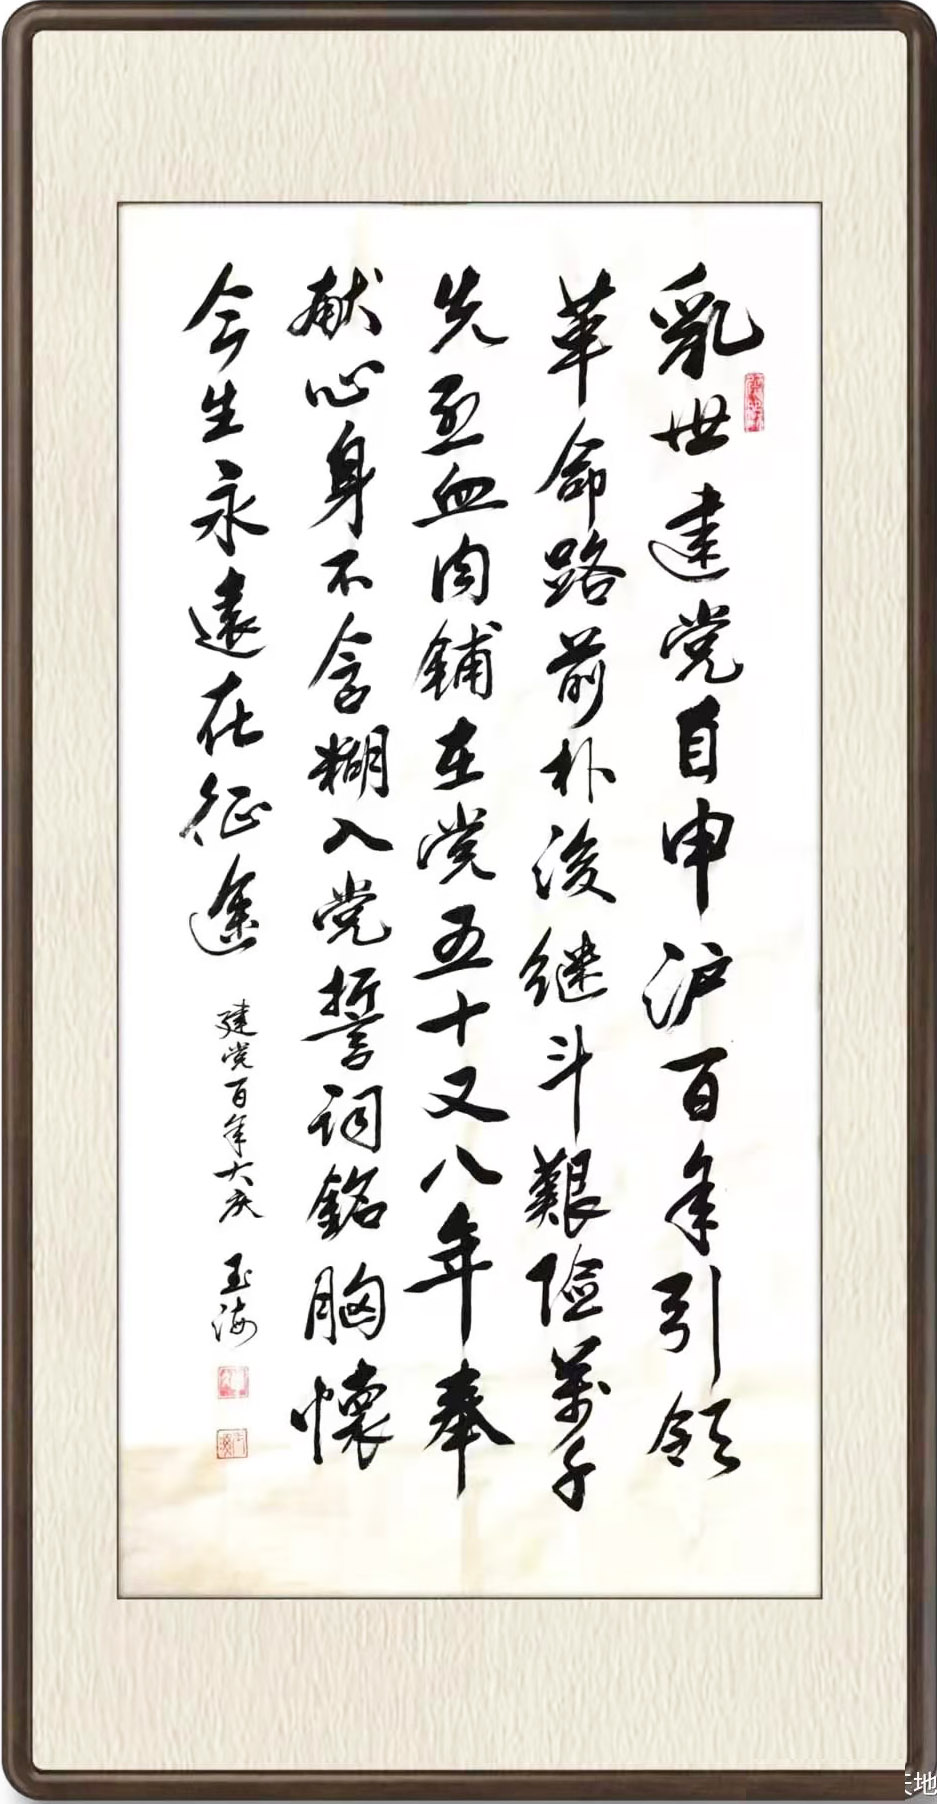 乱世建党自申沪百年引领
革命路前朴後继斗艱险萬千
先烈血肉鋪在党五十又八年奉
献心身不含糊入党誓词銘胸懷
今生永遠在征途
建党百年大庆
玉海
天地